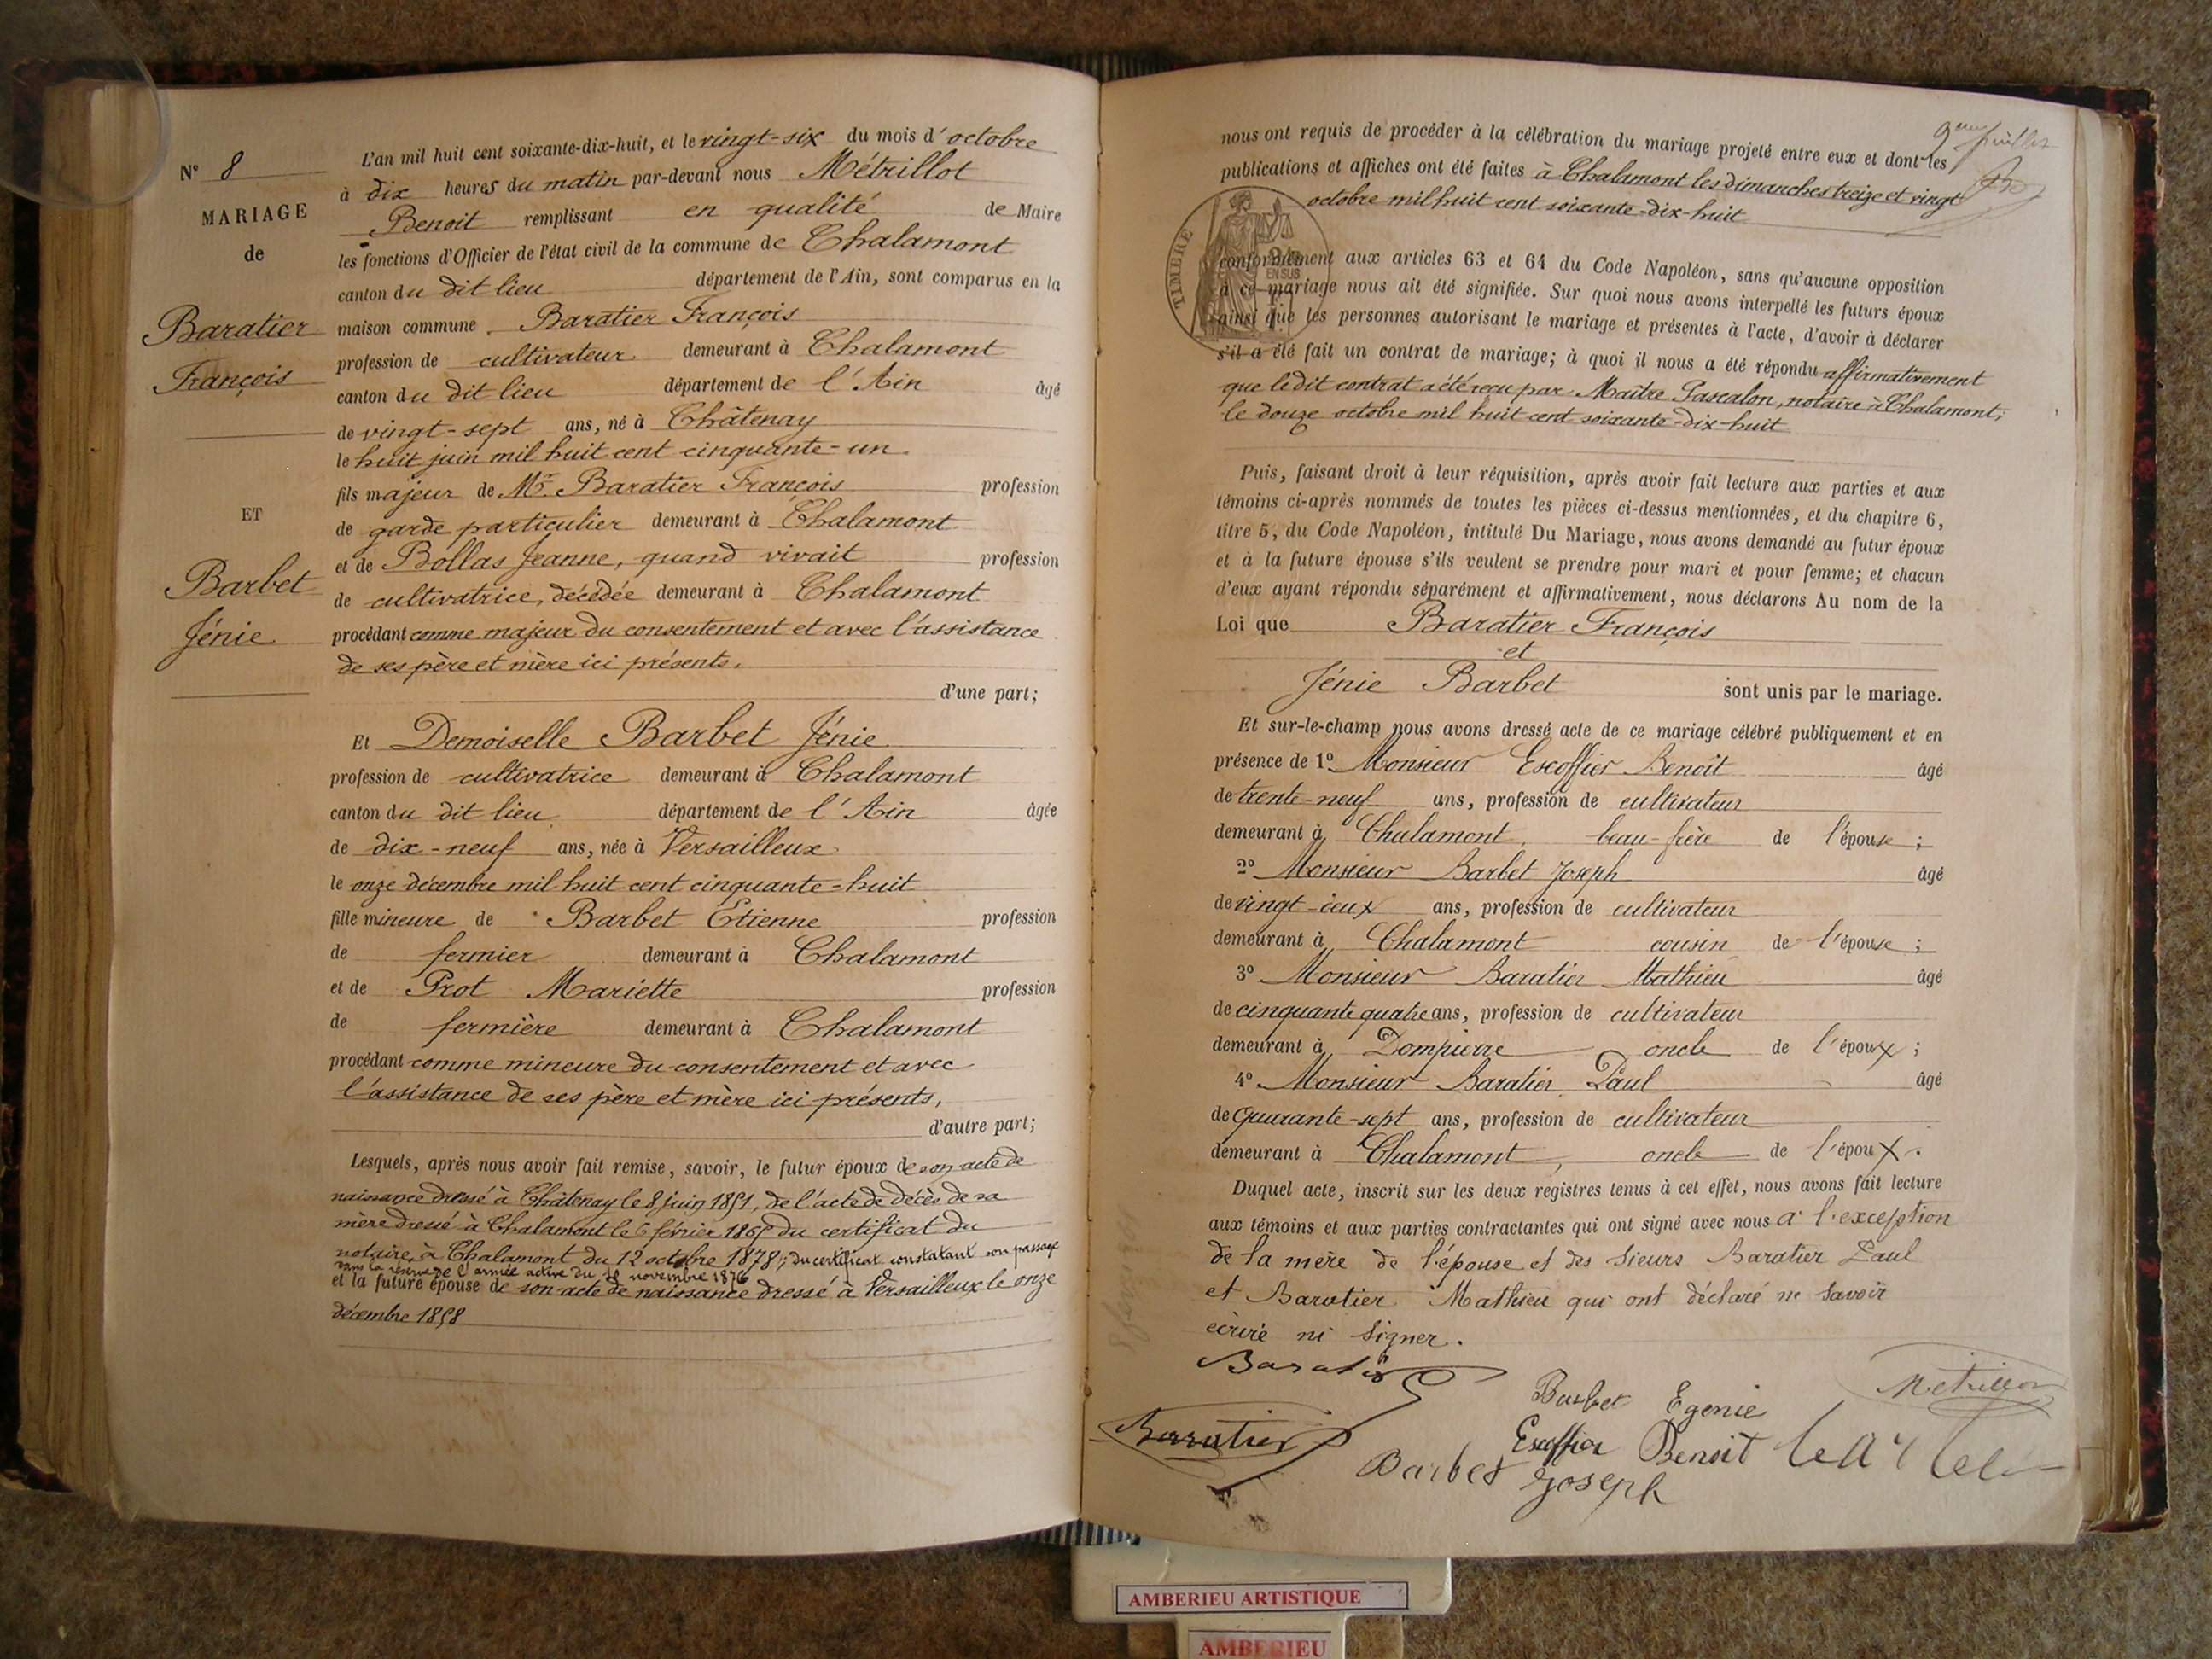 N° 8
MARIAGE
de
Baratier
François
ET
Barbet
Jénie
L'an mil huit cent soixante-dix-huit, et le vingt-six du mois d'octobre
à dix heures du matin par-devant nous Métrillot
Benoit remplissant en qualité de Maire
les fonctions d'Officier de l'état civil de la commune de Chalamont
canton du dit lieu département de l'Ain, sont comparus en la
maison commune Baratier François
profession de cultivateur demeurant à Chalamont
canton du dit lieu département de l'Ain âgé
de vingt-sept ans, né à Châtenay
le huit juin mil huit cent cinquante-un
fils majeur de Mr Baratier François profession
de garde particulier demeurant à Chalamont
et de Bollas Jeanne, quand vivait profession
de cultivatrice, décédée demeurant à Chalamont
procédant comme majeur du consentement et avec l'assistance
de ses père et mère ici présents.
d'une part;
Et Demoiselle Barbet Jénie
profession de cultivatrice demeurant à Chalamont
canton du dit lieu département de l'Ain âgée
de dix-neuf ans, née à Versailleux
le onze décembre mil huit cent cinquante-huit
fille mineure de Barbet Etienne profession
de fermier demeurant à Chalamont
et de Prot Mariette profession
de fermière demeurant à Chalamont
procédant comme mineure du consentement et avec
l'assistance de ses père et mère ici présents,
d'autre part;
Lesquels, après nous avoir fait remise, savoir, le futur époux de son acte de
naissance dressé à Châtenay le 8 juin 1851, de l'acte de décès de sa
mère dressé à Chalamont le 6 février du certificat du
notaire à Chalamont du 12 octobre 1878; du certificat constatant son passage
dans la réserve de l'armée active du novembre 1876
et la future épouse de son acte de naissance dressé à Versailleux le onze
décembre 1858
9eme feuillet
nous ont requis de procéder à la célébration du mariage projeté entre eux et dont les
publications et affiches ont été faites à Chalamont les dimanches treize et vingt
octobre mil huit cent soixante-dix-huit
TIMBRE
EN SUS
conformément aux articles 63 et 64 du Code Napoléon, sans qu'aucune opposition
à ce mariage nous ait été signifiée. Sur quoi nous avons interpellé les futurs époux
ainsi que les personnes autorisant le mariage et présentes à l'acte, d'avoir à déclarer
s'il a été fait un contrat de mariage; à quoi il nous a été répondu affirmativement
que le dit contrat a été reçu par Maître Pascalon, notaire à Chalamont;
le douze octobre mil huit cent soixante-dix-huit
Puis, faisant droit à leur réquisition, après avoir fait lecture aux parties et aux
témoins ci-après nommés de toutes les pièces ci-dessus mentionnées, et du chapitre 6,
titre 5, du Code Napoléon, intitulé Du Mariage, nous avons demandé au futur époux
et à la future épouse s'ils veulent se prendre pour mari et pour femme; et chacun
d'eux ayant répondu séparément et affirmativement, nous déclarons Au nom de la
Loi que Baratier François
et
Jénie Barbet sont unis par le mariage.
Et sur-le-champ nous avons dressé acte de ce mariage célébré publiquement et en
présence de 1° Monsieur Escoffier Benoit âgé
de trente-neuf ans, profession de cultivateur
demeurant à Chalamont, beau-frère de l'épouse;
2° Monsieur Barbet Joseph âgé
de vingt-deux ans, profession de cultivateur
demeurant à Chalamont cousin de l'épouse;
3° Monsieur Baratier Mathieu âgé
de cinquante quatre ans, profession de cultivateur
demeurant à Dompierre oncle de l'époux;
4° Monsieur Baratier Paul âgé
de quarante-sept ans, profession de cultivateur
demeurant à Chalamont, oncle de l'époux.
Duquel acte, inscrit sur les deux registres tenus à cet effet, nous avons fait lecture
aux témoins et aux parties contractantes qui ont signé avec nous à l'exception
de la mère de l'épouse et des sieurs Baratier Paul
et Baratier Mathieu qui ont déclaré ne savoir
écrire ni signer.
Baratier
Barbet Egenie
Métrillot
Baratier
Escoffier Benoit
Barbet Joseph
AMBERIEU ARTISTIQUE
AMBERIEU